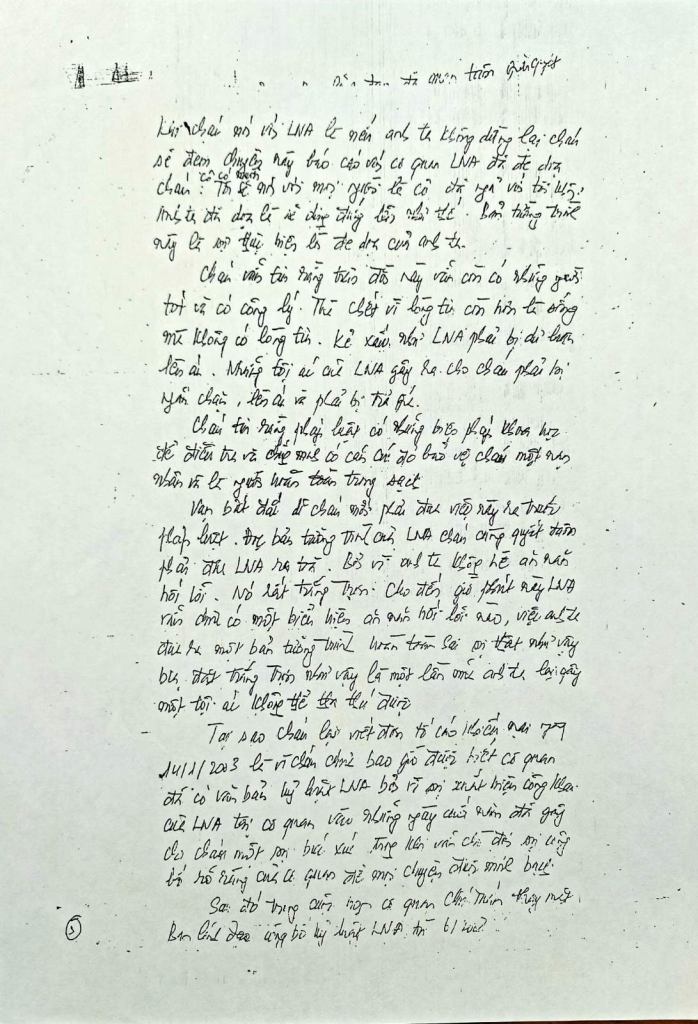 Khi cháu nói với LNA là nếu anh ta không dừng lại cháu
sẽ đem chuyện này báo cáo với cơ quan LNA đã đe dọa
cháu: Tôi sẽ nói với mọi người là cô đã ngủ với tôi
Anh ta đã dọa là sẽ dùng đúng như thế. Bản tường trình
này là sự thực hiện lời đe dọa của anh ta.
Cháu vẫn tin rằng trên đời này vẫn còn có những người
tốt và có công lý. Thà chết vì lòng tin còn hơn là sống
mà không có lòng tin. Kẻ xấu như LNA phải bị dư luận
lên án. Những tội ác của LNA gây ra cho cháu phải bị
ngăn chặn, lên án và phải bị trả giá.
Cháu tin rằng pháp luật có những biện pháp khoa học
để điều tra và chứng minh có căn cứ để bảo vệ cháu một nạn
nhân và là người hoàn toàn trong sạch
Vạn bất đắc dĩ cháu mới phải đưa việc này ra trước
pháp luật. Đọc bản tường trình của LNA cháu càng quyết tâm
phải đưa LNA ra tòa. Bởi vì anh ta không hề ăn năn
hối lỗi. Nó rất trắng trợn. Cho đến giờ phút này LNA
vẫn chưa có một biểu hiện ăn năn hối lỗi nào, việc anh ta
đưa ra một bản tường trình hoàn toàn sai sự thật như vậy
bịa đặt trắng trợn như vậy là một lần nữa anh ta lại gây
một tội ác không thể tha thứ được
Tại sao cháu lại viết đơn tố cáo khiếu nại
14/1/2003 là vì cháu chưa bao giờ được biết cơ quan
đã có văn bản kỷ luật LNA bởi vì sự xuất hiện công khai
của LNA tại cơ quan vào những ngày cuối năm đã gây
cho cháu một sự bức xúc trong khi vẫn chờ đợi sự công
bố rõ ràng của cơ quan để mọi chuyện được minh bạch
Sau đó trong cuộc họp cơ quan
Ban lãnh đạo công bố kỷ luật LNA từ